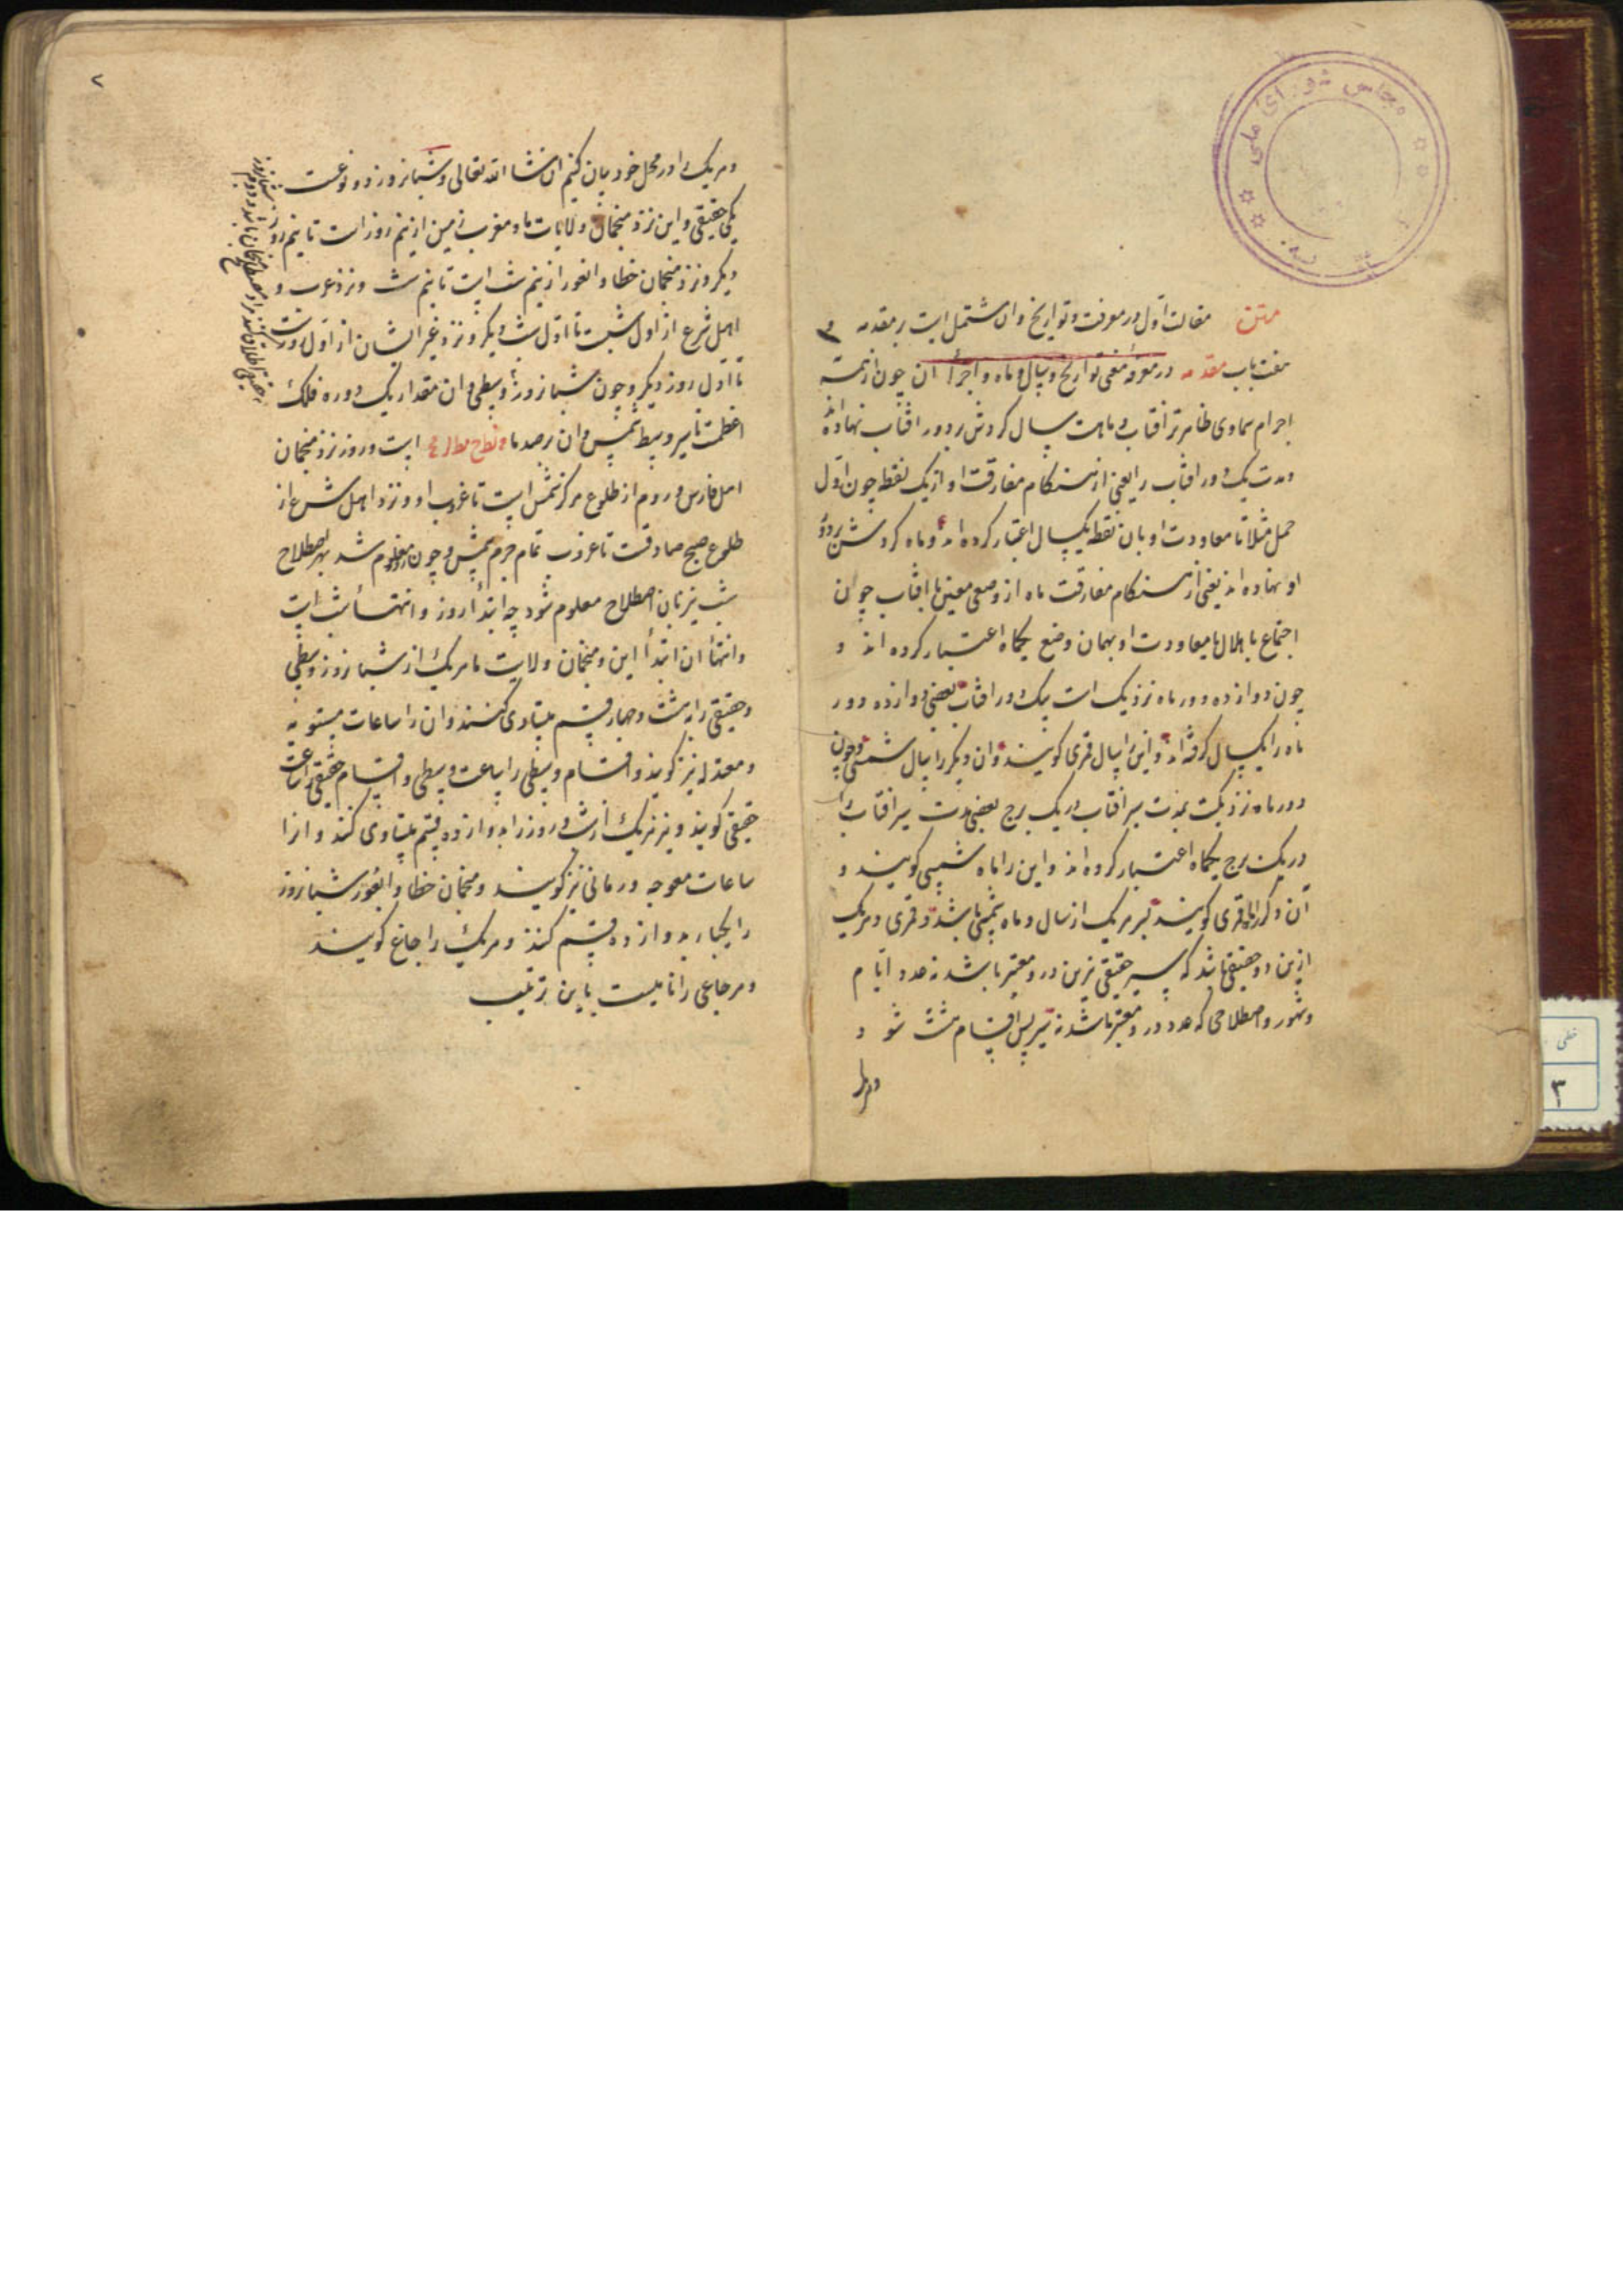 مجلس شورای ملی
متن مقالت اول در معرفت تواریخ و ان مشتمل است بر مقدمه و
هفت باب مقدمه در معرفة معنی تواریخ و سال و ماه و اجزأ ان چون از همه
اجرام سماوی ظاهرتر افتاب و ماهست سال کردش بر دور افتاب نهاده‌اند
و مدت یک دور افتاب را یعنی از هنکام مفارقت او از یک نقطه چون اول
حمل مثلا تا معاودت او بان نقطه یکسال اعتبار کرده اند و ماه کردش بر دور
او نهاده اند یعنی از هنکام مفارقت ماه از وضعی معین با افتاب چون
اجتماع یا هلال تا معاودت او بهمان وضع یکماه اعتبار کرده اند و
چون دوازده دور ماه نزدیک است بیک دور افتاب بعضی دوازده دور
ماه را یکسال کرفته اند و این را سال قمری کویند و ان دیکر را سال شمسی و چون
دور ماه نزدیکست بمدت سیر افتاب در یک برج بعضی مدت سیر افتاب را
در یک برج یکماه اعتبار کرده اند و این را ماه شمسی کویند و
آن دکر را ماه قمری کویند پس هر یک از سال و ماه شمسی باشد و قمری و هر یک
ازین دو حقیقی باشد که سیر حقیقی نیرین درو معتبر باشد نه عدد ایام
و شهور و اصطلاحی که عدد درو معتبر باشد نه سیر پس اقسام هشت شود
و هر یک را
۲
و هر یک را در محل خود بیان کنیم ان شا الله تعالی و شبانروز دو نوعست
یکی حقیقی و این نزد منجمان ولایات ما و مغرب زمین از نیم روز است تا نیم روز
دیکر و نزد منجمان خطا و ایغور از نیم شب است تا نیم شب و نزد عرب و
اهل شرع از اول شبست تا اول شب دیکر و نزد غیر ایشان از اول روزست
تا اول روز دیکر و چون شبانروز وسطی و ان مقدار یک دوره فلک
اعظمست با سیر وسط شمس و ان برصد ما است و روز نزد منجمان
اهل فارس و روم از طلوع مرکز شمس است تا غروب او و نزد اهل شرع از
طلوع صبح صادقست تا غروب تمام جرم شمس و چون روز معلوم شد بهر اصطلاح
شب نیز بان اصطلاح معلوم شود چه ابتدأ روز و انتهأ شب است
و انتهأ ان ابتدأ این و منجمان ولایت ما هر یک از شبانروز وسطی
و حقیقی را به بیست و چهار قسم متساوی کنند و ان را ساعات مستویه
و معتدله نیز کویند و اقسام وسطی را ساعت وسطی و اقسام حقیقی را ساعت
حقیقی کویند و نیز هر یک از شب و روز را بدوازده قسم متساوی کنند و انرا
ساعات معوجه و زمانی نیز کویند و منجمان خطا و ایغور شبانروز
را یکبار بدوازده قسم کنند و هر یک را جاغ کویند
و هر جاغی را نامیست باین ترتیب
خطی
۳